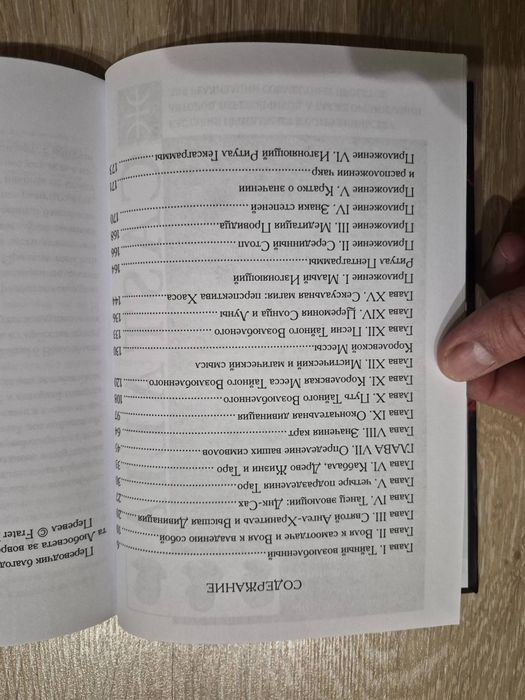 СОДЕРЖАНИЕ
Глава I. Тайный возлюбленный
Глава II. Воля к самоотдаче и Воля к владению собой
Глава III. Святой Ангел-Хранитель и Высшая Дивинация
Глава IV. Танец эволюции: Днк-Сах
Глава V. четыре подразделения Таро
Глава VI. Каббала, Древо Жизни и Таро
ГЛАВА VII. Определение ваших символов 45
Глава VIII. Значения карт 64
Глава IX. Окончательная дивинация 97
Глава X. Путь Тайного Возлюбленного 108
Глава XI. Королевская Месса Тайного Возлюбленного 120
Глава XII. Мистический и магический смысл
Королевской Мессы 130
Глава XII. Песни Тайного Возлюбленного 133
Глава XIV. Церемония Солнца и Луны 136
Глава XV. Сексуальная магия: перспектива Хаоса 144
Приложение I. Малый Изгоняющий
Ритуал Пентаграммы 164
Приложение II. Серединный Столп 166
Приложение III. Медитация Провидца 168
Приложение IV. Знаки степеней 170
Приложение V. Кратко о значении
и расположении чакр 171
Приложение VI. Изгоняющий Ритуал Гексаграммы 173
Переводчик благод
та Любосвета за вовре
Перевел © Frater